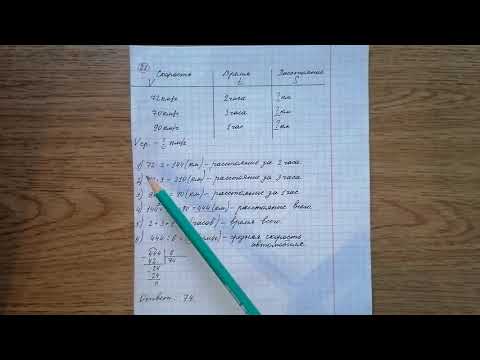 Скорость Время Расстояние
V t S
72 км/ч 2 часа ? км
70 км/ч 3 часа ? км
90 км/ч 1 час ? км
Vср. - ? км/ч
1) 72 · 2 = 144 (км) - расстояние за 2 часа.
2) · 3 = 210 (км) - расстояние за 3 часа
3) 90 (км) - расстояние за 1 час
4) 144 + 90 = 444 (км) - расстояние всего.
5) 2 + 3 + (часов) - время всего.
6) 444 : 6 = - средняя скорость
автомобиля.
444 6
42 74
24
24
0
Ответ: 74